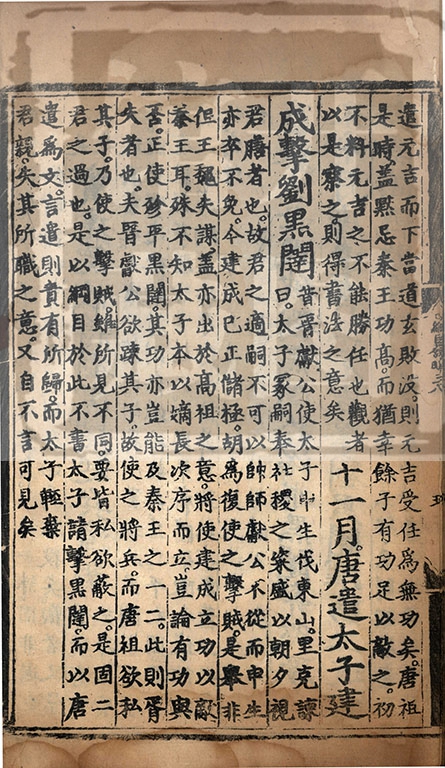 遣元吉而下當道玄敗没則元吉受任爲無功矣唐祖
是時蓋黙忌秦王功高而猶幸餘子有功足以敵之初
不料元吉之不能勝任也觀者
以是察之則得書法之意矣
十一月唐遣太子建
成擊劉黒闥
昔晋獻公使太子申生伐東山里克諫
曰太子冢嗣奉社稷之粢盛以朝夕視
君膳者也故君之適嗣不可以帥師獻公不從而申生
亦卒不免今建成已正儲極胡爲復使之擊賊是舉非
但王魏失謀蓋亦出於高祖之意將使建成立功以敵
秦王耳殊不知太子本以嫡長次序而立豈論有功與
否正使殄平黒闥其功亦豈能及秦王之十二此則胥
失者也夫晋獻公欲踈其子故使之將兵而唐祖欲私
其子乃使之擊賊雖所見不同要皆私欲蔽之是固二
君之過也是以綱目於此不書太子請擊黒闥而以唐
遣爲文言遣則責有所歸而太子輕棄
君親失其所職之意又自不言可見矣